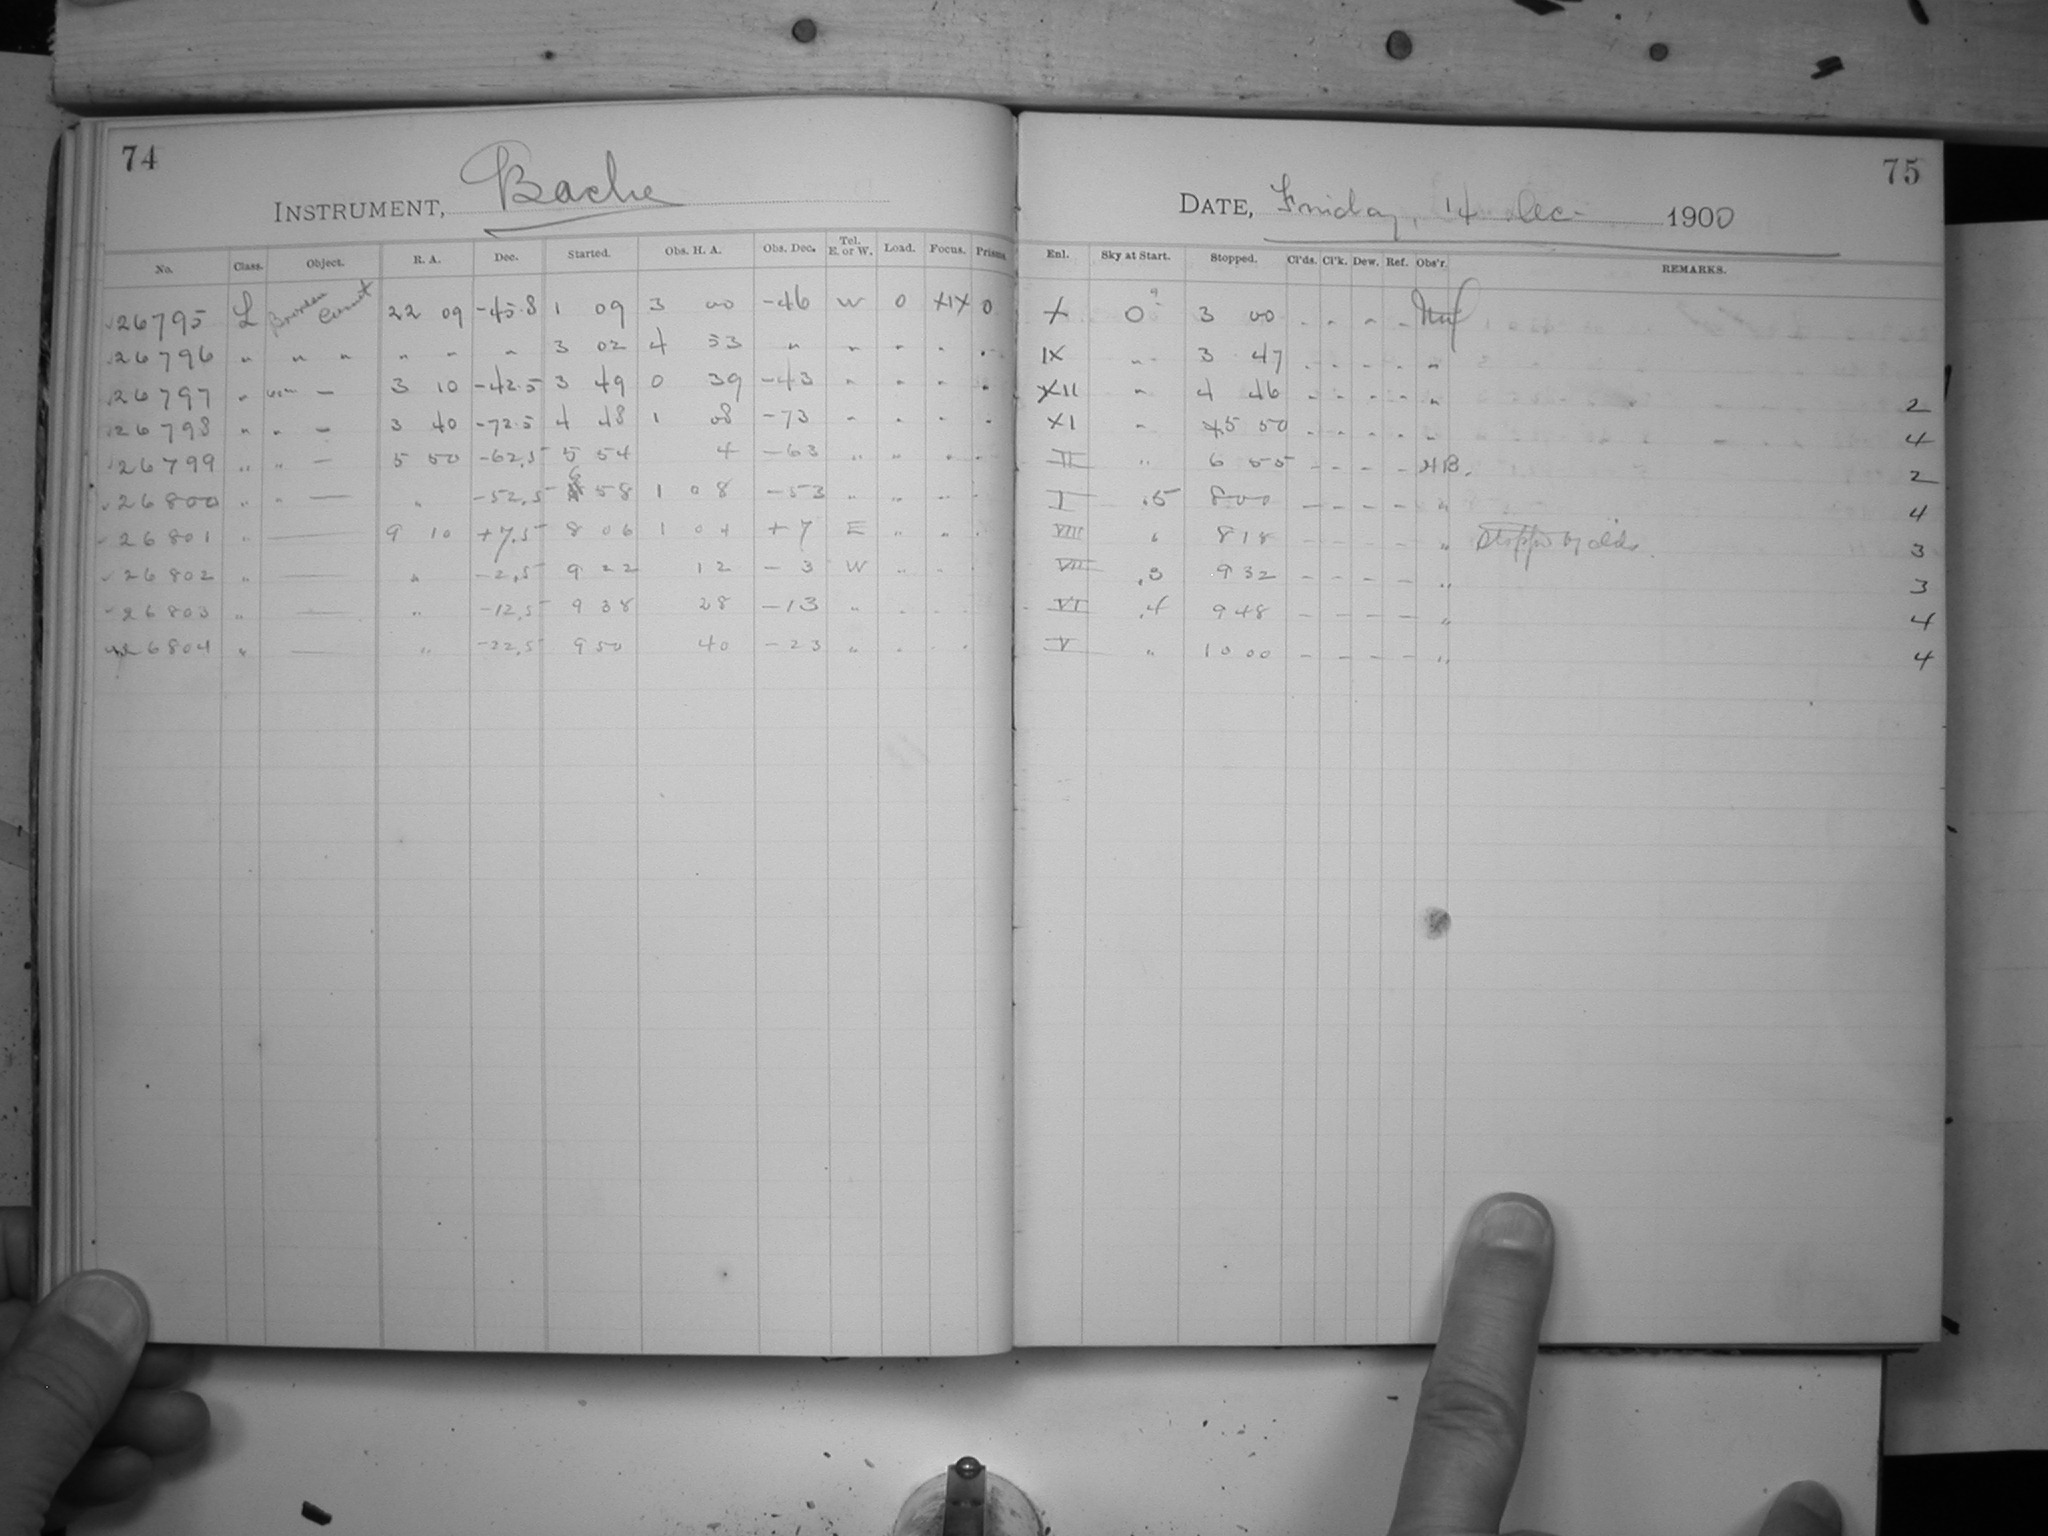 74
INSTRUMENT, Bache
No. Class. Object. R. A. Dec. Started. Obs. H. A. Obs. Dec. Tel. E. or W. Load. Focus. Prisms.
26795 L comet 22 09 -45.8 1 09 3 00 -46 W 0 XIX 0
26796 " " " " " " 3 02 4 53 " " " " "
26797 " — 3 10 -42.5 3 49 0 39 -43 " " " "
26798 " " — 3 40 -72.5 4 48 1 08 -73 " " " "
26799 " " — 5 50 -62.5 5 54 4 -63 " " " "
26800 " " — " -52.5 6 58 1 08 -53 " " " "
26801 " — 9 10 +7.5 8 06 1 04 +7 E " " "
26802 " — " -2.5 9 22 12 -3 W " "
26803 " — " -12.5 9 38 28 -13 " " "
26804 " — " -22.5 9 50 40 -23 " " " "
75
DATE, Friday, 14 Dec. 1900
Enl. Sky at Start. Stopped. Cl'ds. Cl'k. Dew. Ref. Obs'r. REMARKS.
X 0 3 00 - - - -
IX " 3 47 - - - - "
XII " 4 46 - - - - " 2
XI " 5 50 - - - - " 4
II " 6 55 - - - - HB. 2
I .5 8 00 - - - - " 4
VIII " 8 18 - - - - " Stopped by clds. 3
VII .3 9 32 - - - - " 3
VI .4 9 48 - - - - " 4
V " 10 00 - - - - " 4